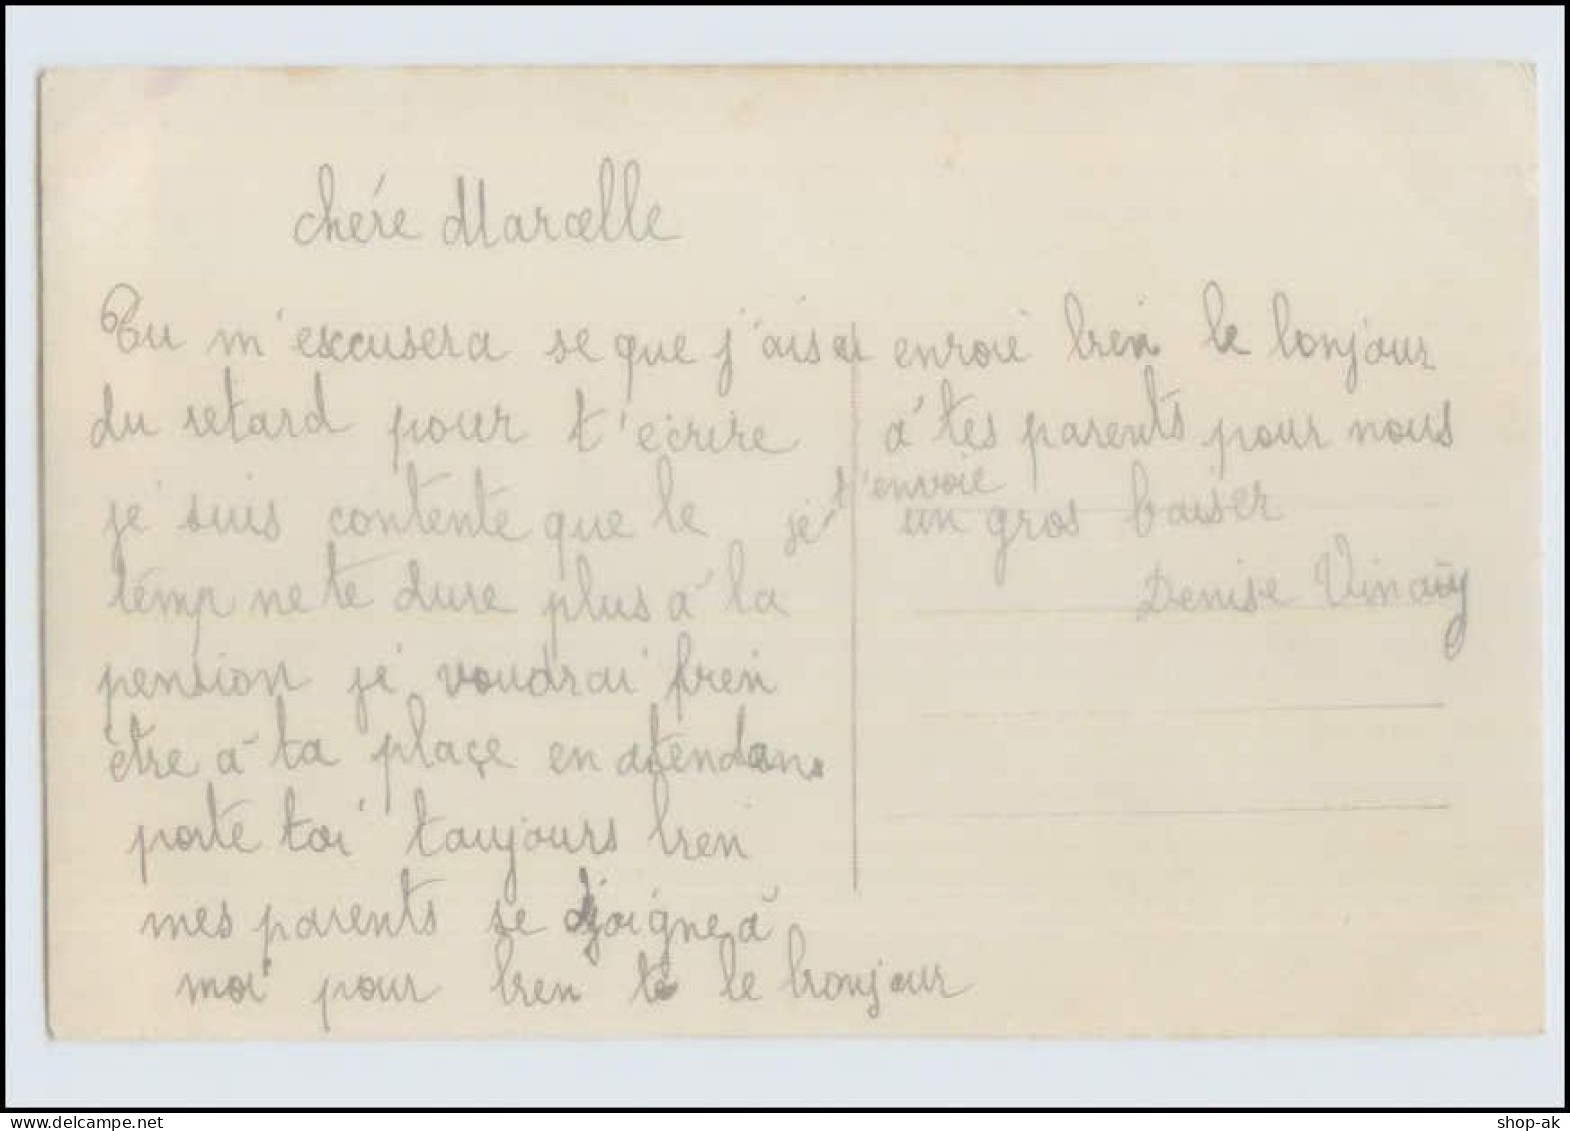 chére Marcelle
Tu m'excusera se que j'ais
du retard pour t'écrire
jé suis contente que le
temp ne te dure plus á la
pension jé voudrai bien
être á ta plaçe en atendans
porte toi toujours bien
mes parents se joigne á
moi pour bien te le bonjour
envoie bien le bonjour
á tes parents pour nous
jé t'envoie un gros baiser
Denise
shop-ak